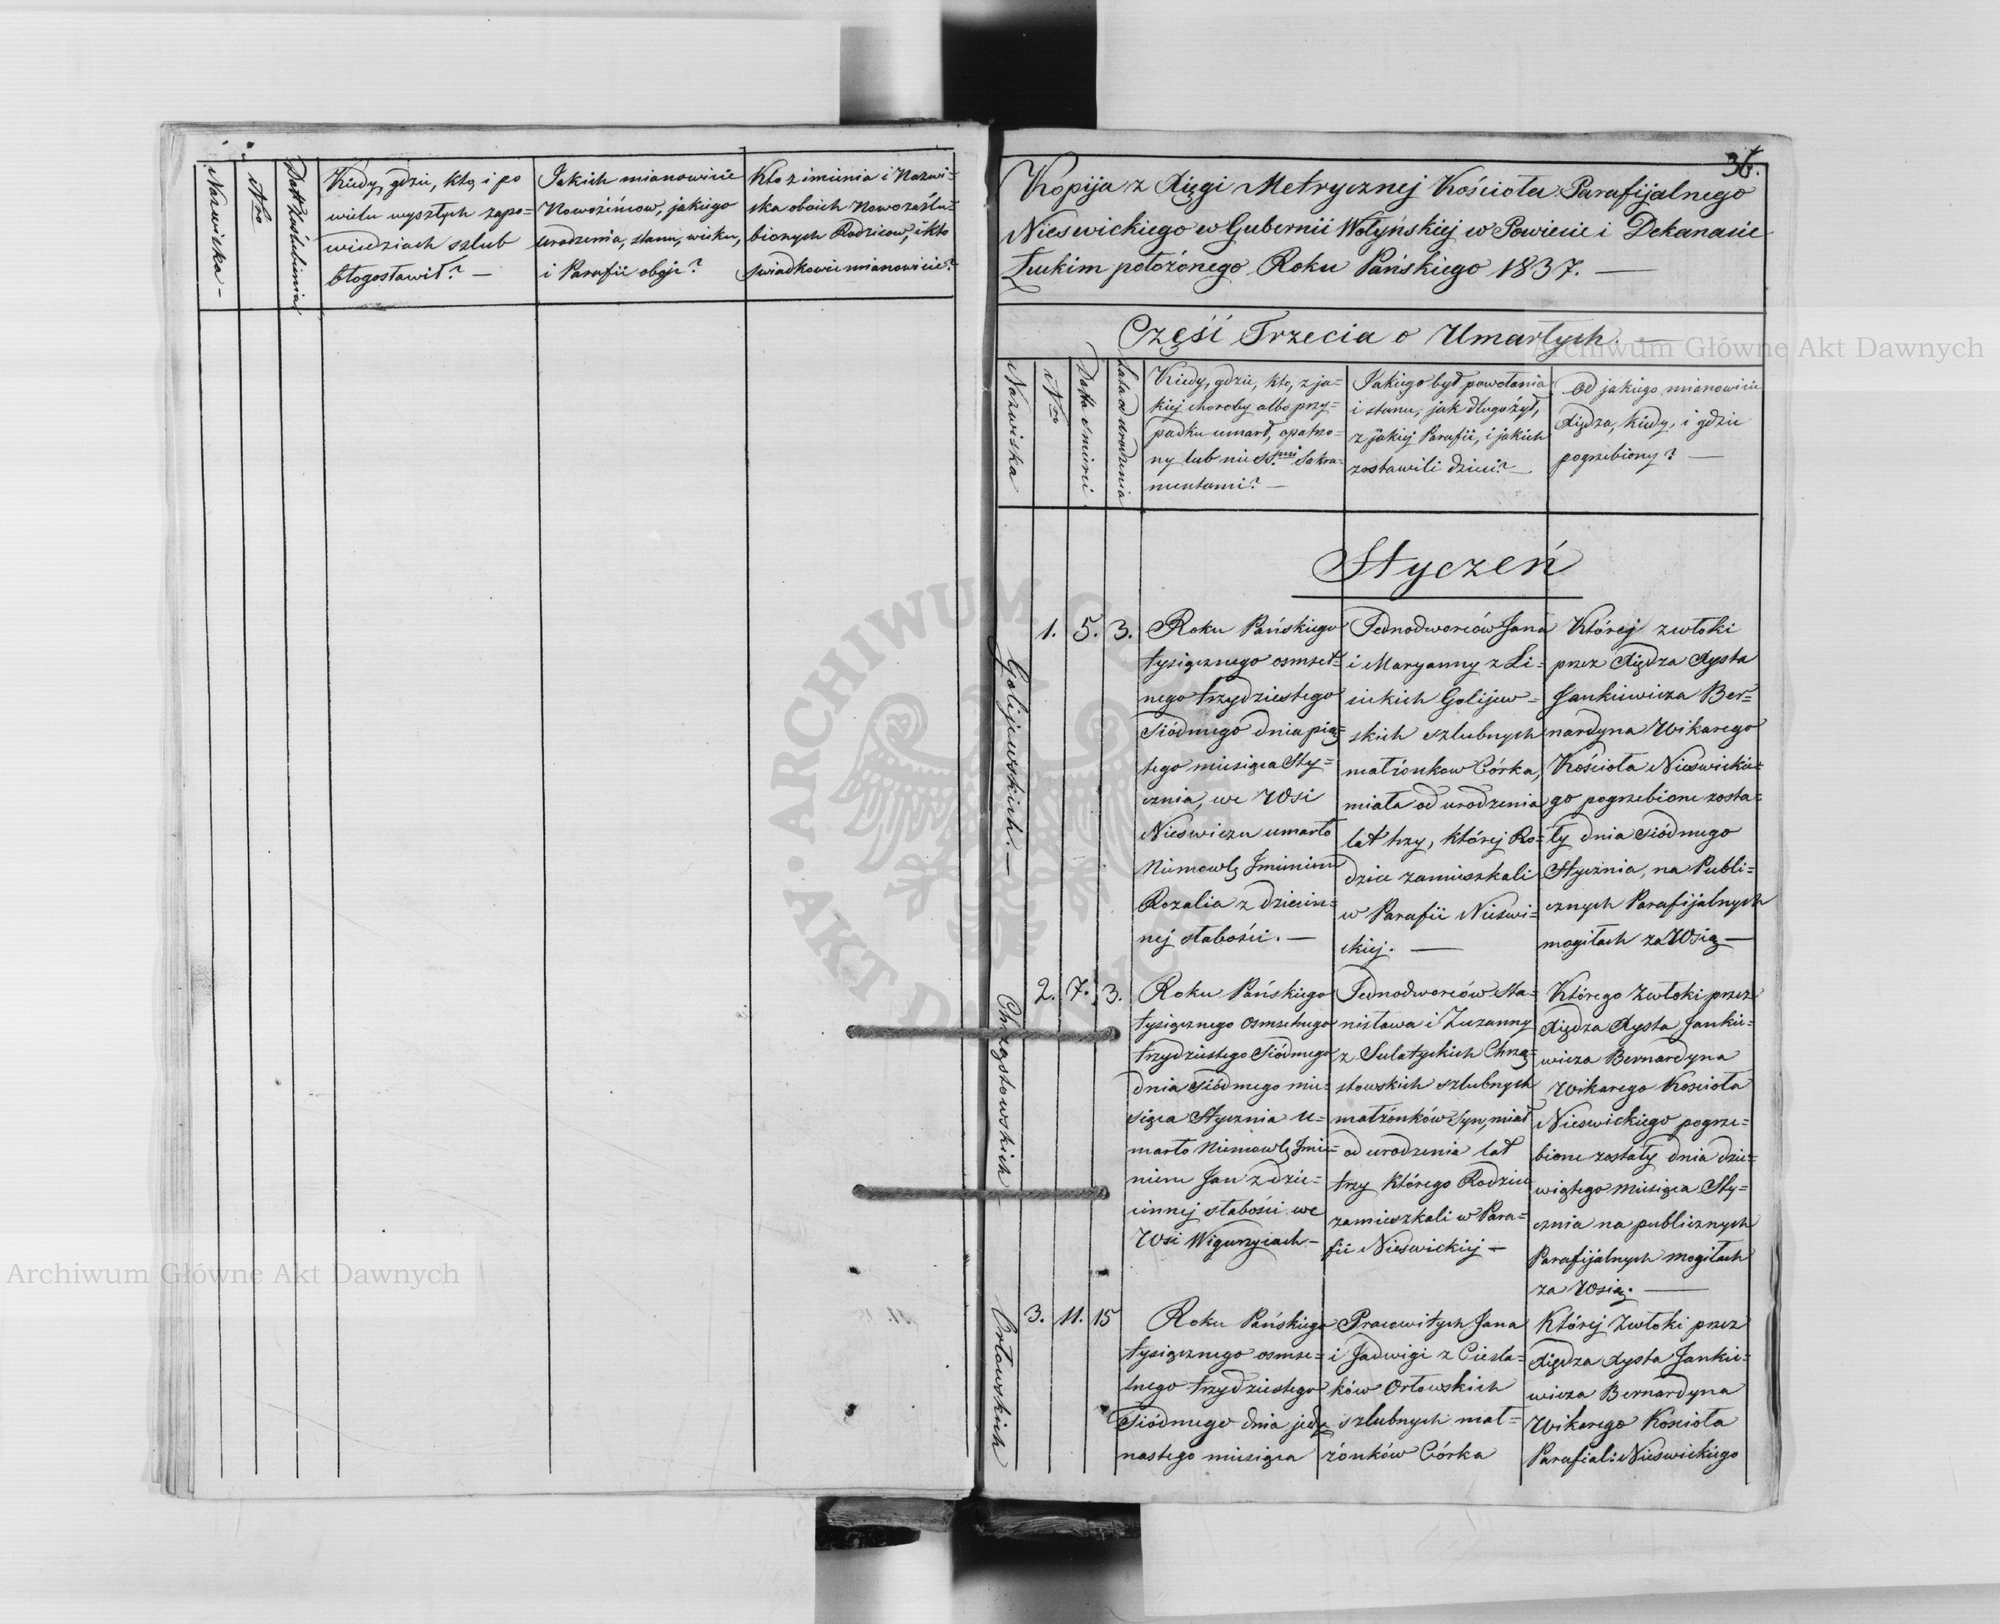 Nazwiska –
Nro
Data Zaślubienia
Kiedy, gdzie, kto, i po
wielu wyszłych zapo-
wiedziach szlub
błogosławił? —
Jakich mianowicie
Nowożeńcow, jakiego
urodzenia, stanu, wieku,
i Parafii obojé?
Kto z imienia i Nazwi-
ska oboich Nowozaślu-
bionych Rodzicow, i kto
świadkowie mianowicie?
36.
Kopija z Xięgi Metrycznej Kościoła Parafijalnego
Nieswickiego w Gubernii Wołyńskiej w Powiecie i Dekanacie
Łuckim położonego Roku Pańskiego 1837. —
Część Trzecia o Umarłych. —
Nazwiska
Nro
Data Śmierci
Lata od urodzenia
Kiedy, gdzie, kto, z ja-
kiej choroby albo przy-
padku umarł, opatrzo-
ny lub nie S.mi Sakra-
mentami? —
Jakiego był powołania
i stanu, jak długo żył,
z jakiej Parafii, i jakich
zostawili dzieci? —
Od jakiego mianowicie
Xiędza, kiedy, i gdzie
pogrzebiony? —
Styczeń
Golijewskich. —
1. 5. 3.
Roku Pańskiego
tysiącznego osmset-
nego trzydziestego
Siódmego dnia pią-
tego miesiąca Sty-
cznia, we Wsi
Nieswiczu umarło
Niemowlę Imieniem
Rozalia z dziecin-
nej słabości. —
Jednodworców Jana
i Maryanny z Li-
sickich Golijew-
skich szlubnych
małżonkow Córka,
miała od urodzenia
lat trzy, której Ro-
dzice zamieszkali
w Parafii Nieswi-
ckiej. —
Której zwłoki
przez Xiędza Xysta
Jankiewicza Ber-
nardyna Wikarego
Kościoła Nieswickie-
go pogrzebione zosta-
ły dnia siódmego
Stycznia, na Publi-
cznych Parafijalnych
mogiłach za Wsią —
Chrząstowskich
2. 7. 3.
Roku Pańskiego
tysiącznego osmsetnego
trzydziestego Siódmego
dnia siódmego mie-
siąca Stycznia u-
marło Niemowlę Imie-
niem Jan z dzie-
cinnej słabości we
Wsi Wiguryczach —
Jednodworców Sta-
nisława i Zuzanny
z Sulatyckich Chrzą-
stowskich szlubnych
małżonków Syn, miał
od urodzenia lat
trzy którego Rodzice
zamieszkali w Para-
fii Nieswickiej —
Którego Zwłoki przez
Xiędza Xysta Jankie-
wicza Bernardyna
Wikarego Kościoła
Nieswickiego pogrze-
bione zostały dnia dzie-
wiątego miesiąca Sty-
cznia na publicznych
Parafijalnych mogiłach
za Wsią. —
Orłowskich
3. 11. 15
Roku Pańskiego
tysiącznego osmse-
tnego trzydziestego
Siódmego dnia jede-
nastego miesiąca
Pracowitych Jana
i Jadwigi z Ciesla-
ków Orłowskich
szlubnych mał-
żonków Córka
Której Zwłoki przez
Xiędza Xysta Jankie-
wicza Bernardyna
Wikarego Kościoła
Parafial: Nieswickiego
Archiwum Główne Akt Dawnych
Archiwum Główne Akt Dawnych